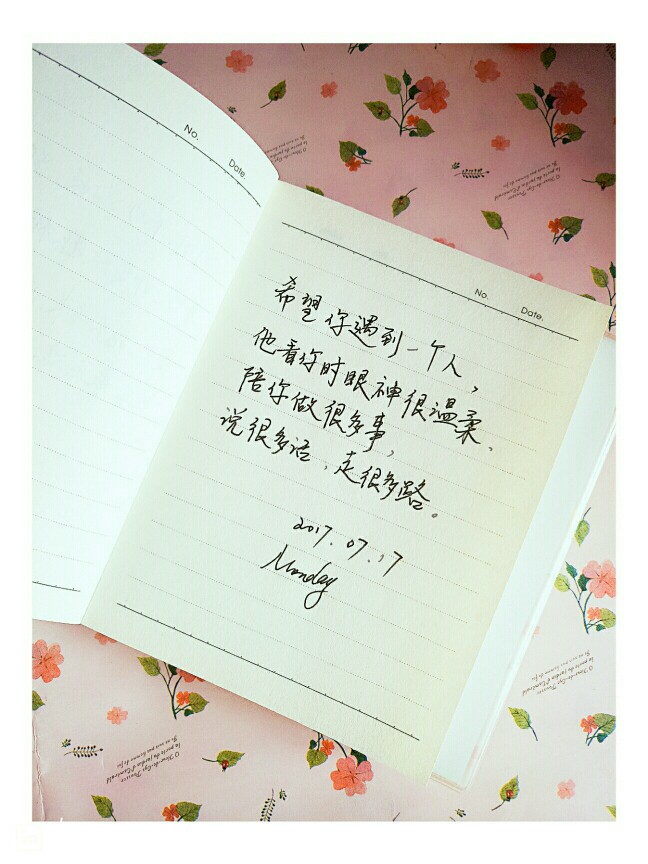 No.
Date.
No.
Date.
希望你遇到一个人，
他看你时眼神很温柔、
陪你做很多事，
说很多话，走很多路。
2017.07.17
Monday